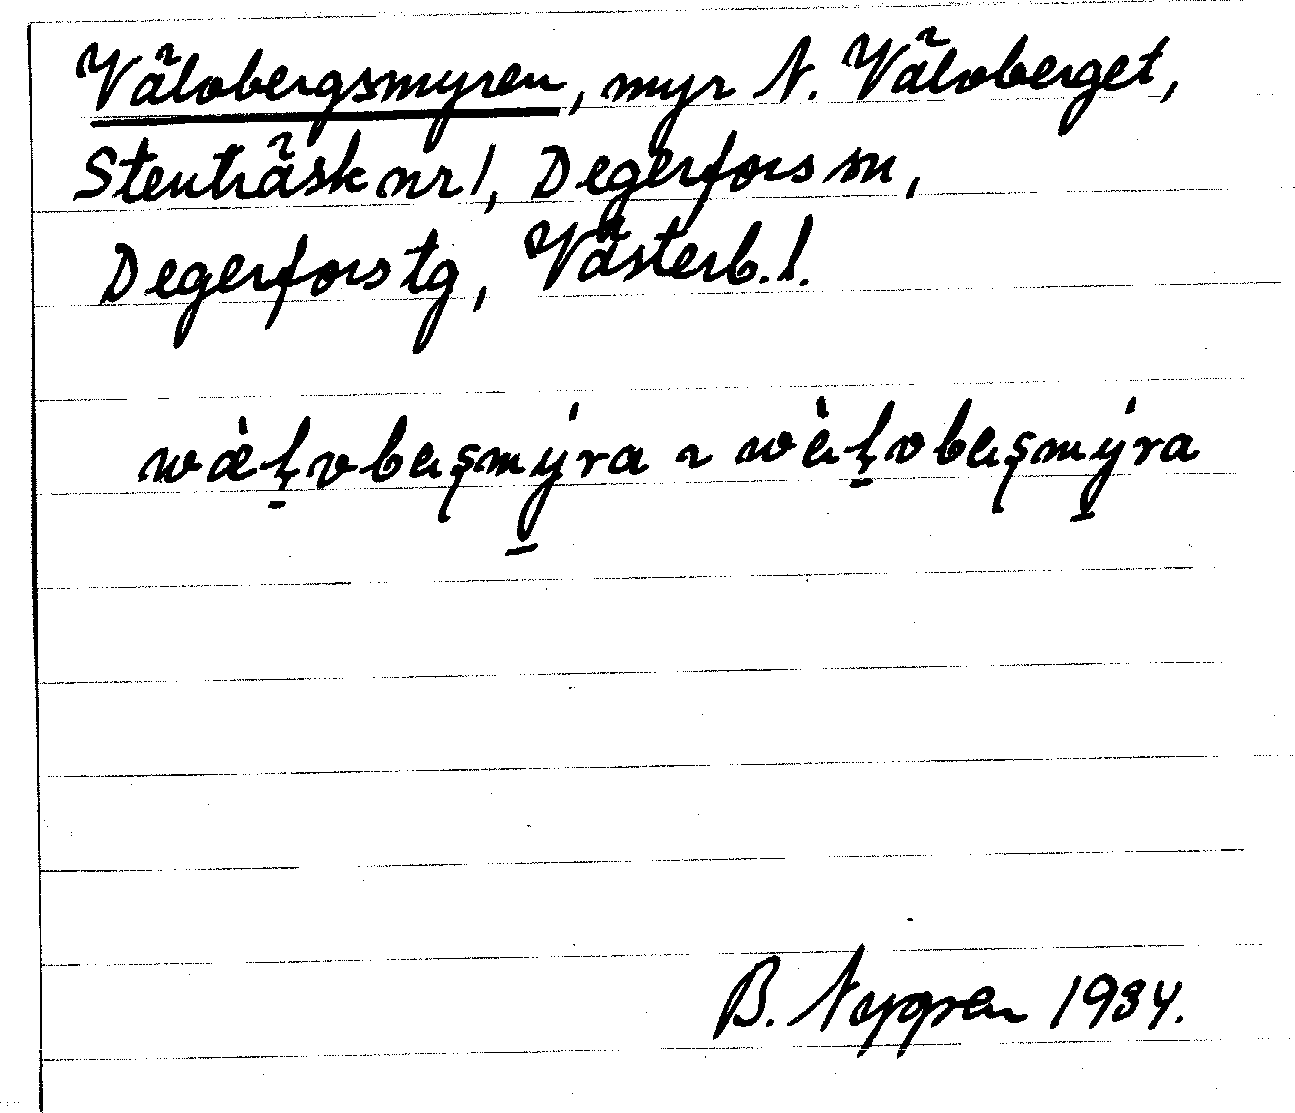 Välvbergsmyren, myr N. Välvberget,
Stenträsk nr 1, Degerfors sn,
Degerfors tg, Västerb. l.
wæ̀ḷvbeʂmýra ~ wàḷvbeʂmýra
B. Nygren 1934.